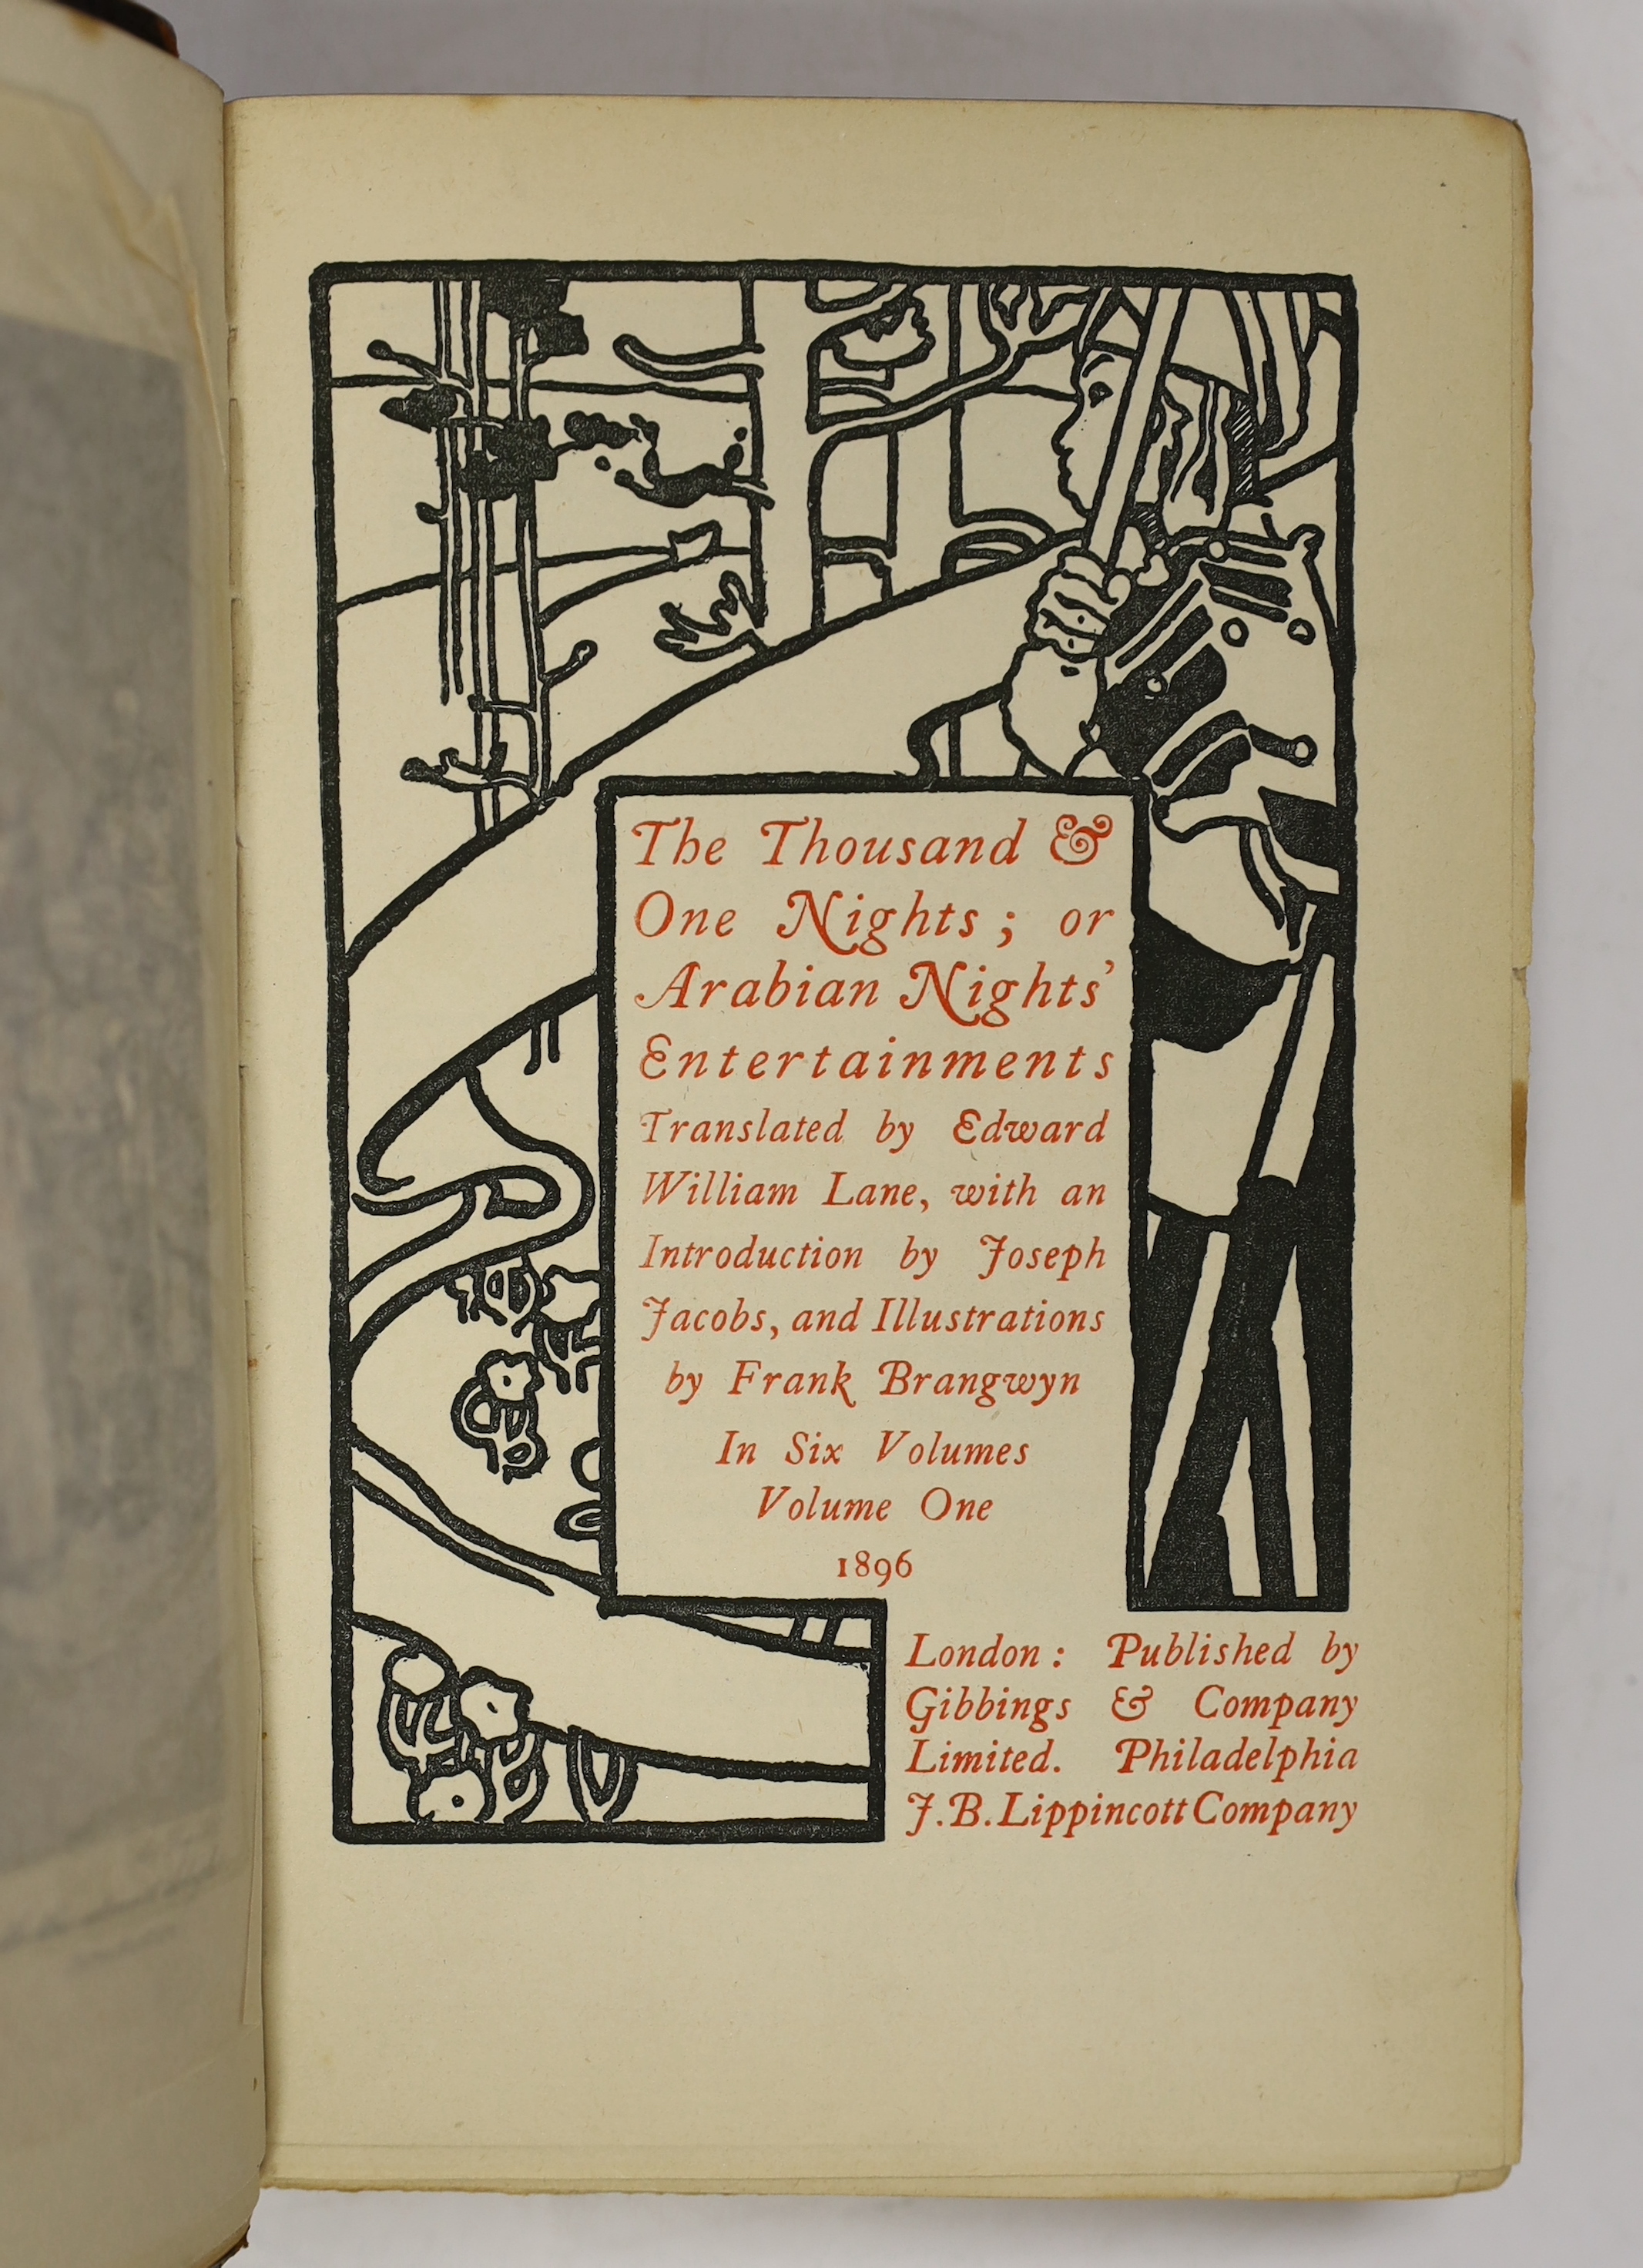 The Thousand &
One Nights; or
Arabian Nights'
Entertainments
Translated by Edward
William Lane, with an
Introduction by Joseph
Jacobs, and Illustrations
by Frank Brangwyn
In Six Volumes
Volume One
1896
London: Published by
Gibbings & Company
Limited. Philadelphia
J. B. Lippincott Company